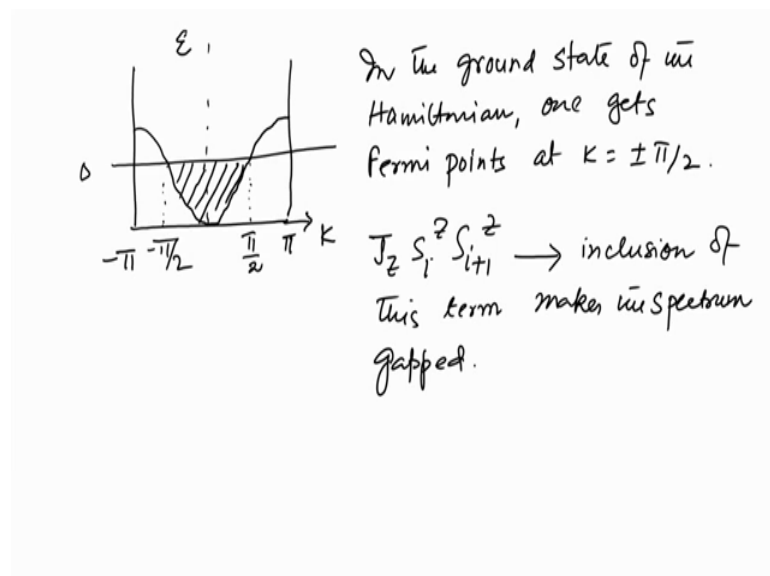 ε
0
-π -π/2 π/2 π K
In the ground state of the
Hamiltonian, one gets
Fermi points at K = ± π/2.
J_z S_i^z S_{i+1}^z → inclusion of
This term makes the spectrum
gapped.